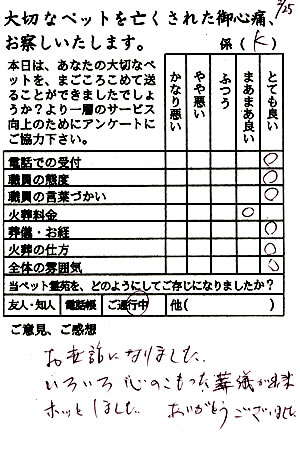 大切なペットを亡くされた御心痛、
7/25
お察しいたします。 係(K)
本日は、あなたの大切なペットを、まごころこめて送ることができましたでしょうか?より一層のサービス向上のためにアンケートにご協力下さい。
かなり悪い
やや悪い
ふつう
まあまあ良い
とても良い
電話での受付 ○
職員の態度 ○
職員の言葉づかい ○
火葬料金 ○
葬儀・お経 ○
火葬の仕方 ○
全体の雰囲気 ○
当ペット霊苑を、どのようにしてご存じになりましたか?
友人・知人 電話帳 ご通行中 他( )
ご意見、ご感想
お世話になりました。
いろいろ心のこもった葬儀が出来
ホッとしました。 ありがとうございました